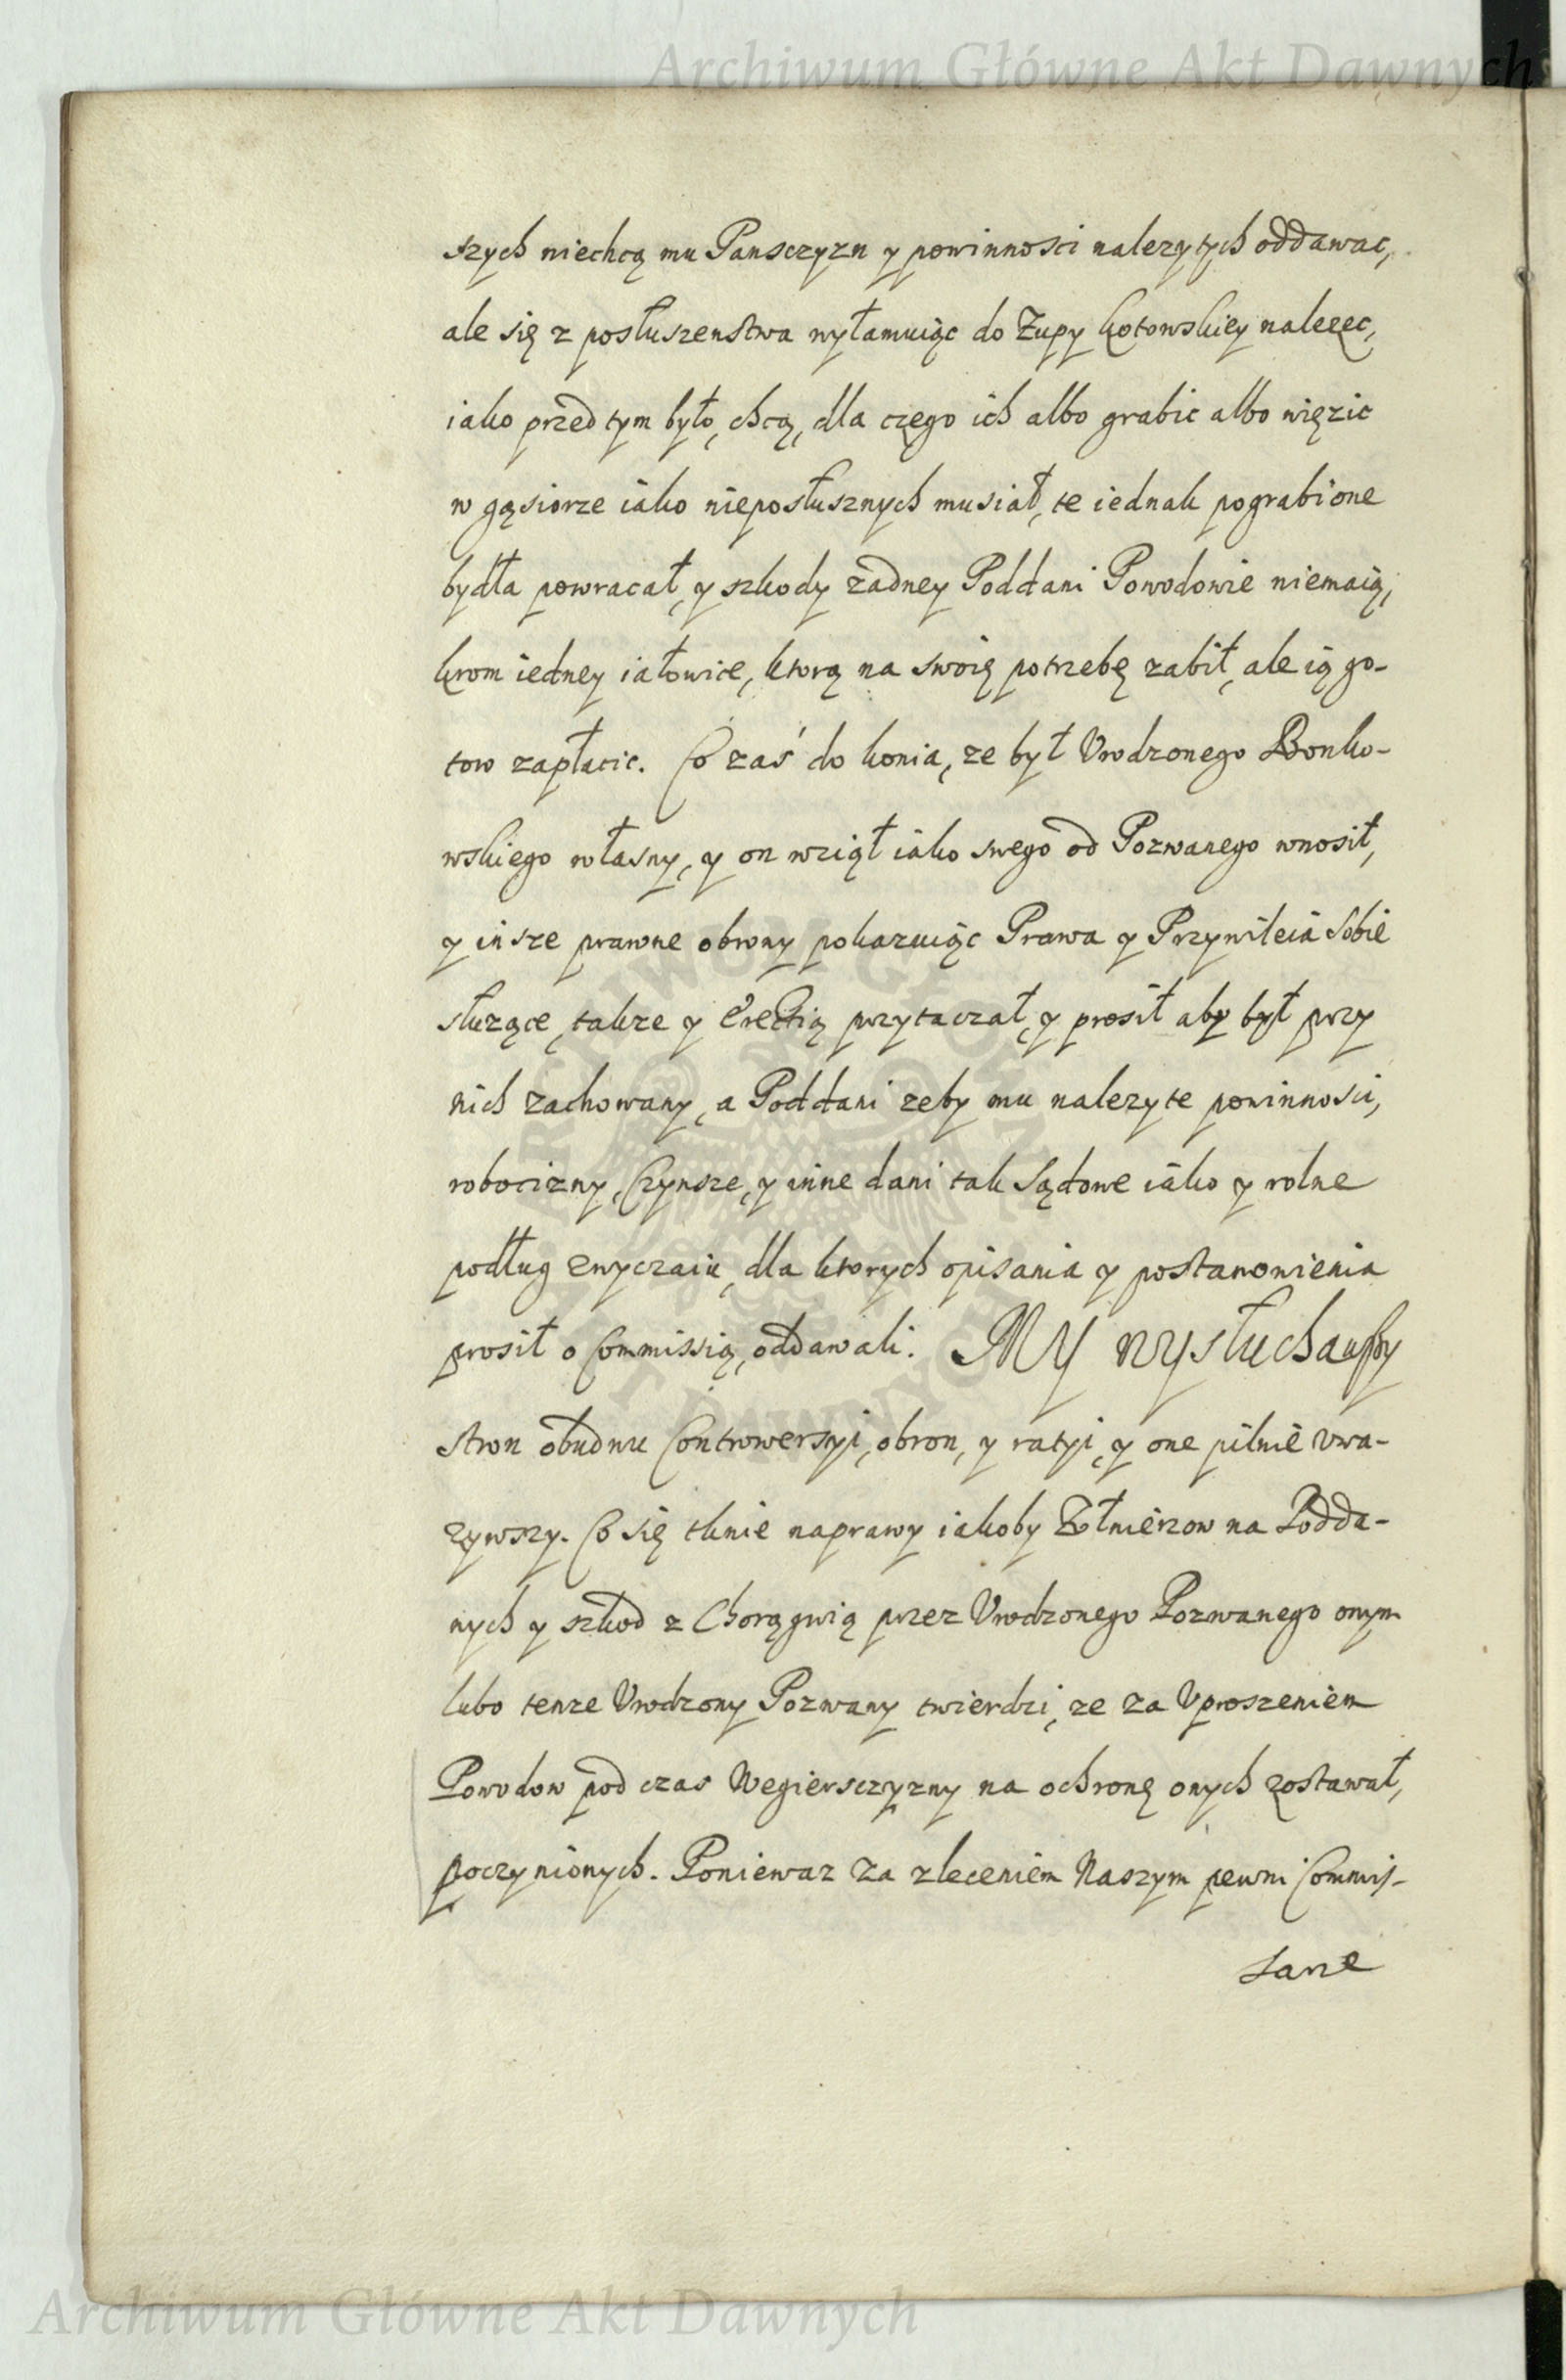 Archiwum Główne Akt Dawnych
szych niechcą mu Pansczyzn y powinnosci nalezytych oddawac,
ale się z posłuszenstwa wyłamuiąc do Zupy Kotowskiey nalezec,
iako przed tym było, chcą, dla czego ich albo grabic albo więzic
w gąsiorze iako nieposłusznych musiał, te iednak pograbione
bydła powracał, y szkody zadney Poddani Powodowie niemaią,
krom iedney iałowice, ktorą na swoię potrzebę zabił, ale ią go-
tow zapłacic. Co zaś do konia, ze był Vrodzonego Bonko-
wskiego własny, y on wziął iako swego od Pozwanego wnosił,
y insze prawne obrony pokazuiąc Prawa y Przywileia sobie
słuzące, takze y Erectią przytaczał, y prosił aby był przy
nich zachowany, a Poddani zeby mu nalezyte powinnosci,
robocizny, Czynsze, y inne dani tak sądowe iako y rolne
podług zwyczaiu, dla ktorych opisania y postanowienia
prosił o Commissią, oddawali. MY wysłuchawszy
stron obudwu Controwersyi, obron, y ratyi, y one pilnie vwa-
zywszy. Co się tknie naprawy iakoby Zołnierzow na Podda-
nych y szkod z Chorągwią przez Vrodzonego Pozwanego onym
lubo tenze Vrodzony Pozwany twierdzi, ze za Vproszeniem
Powodow pod czas Wegiersczyzny na ochronę onych zostawał,
poczynionych. Poniewaz za zleceniem Naszym pewni Commis-
sarze
Archiwum Główne Akt Dawnych